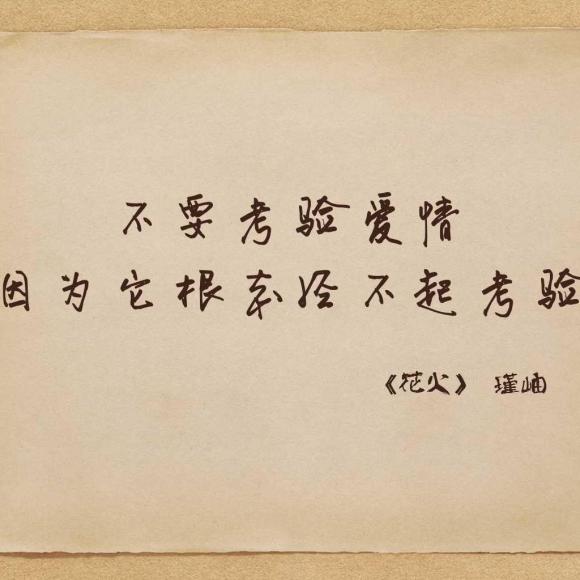 不要考验爱情
因为它根本经不起考验
《花火》 瑾岫